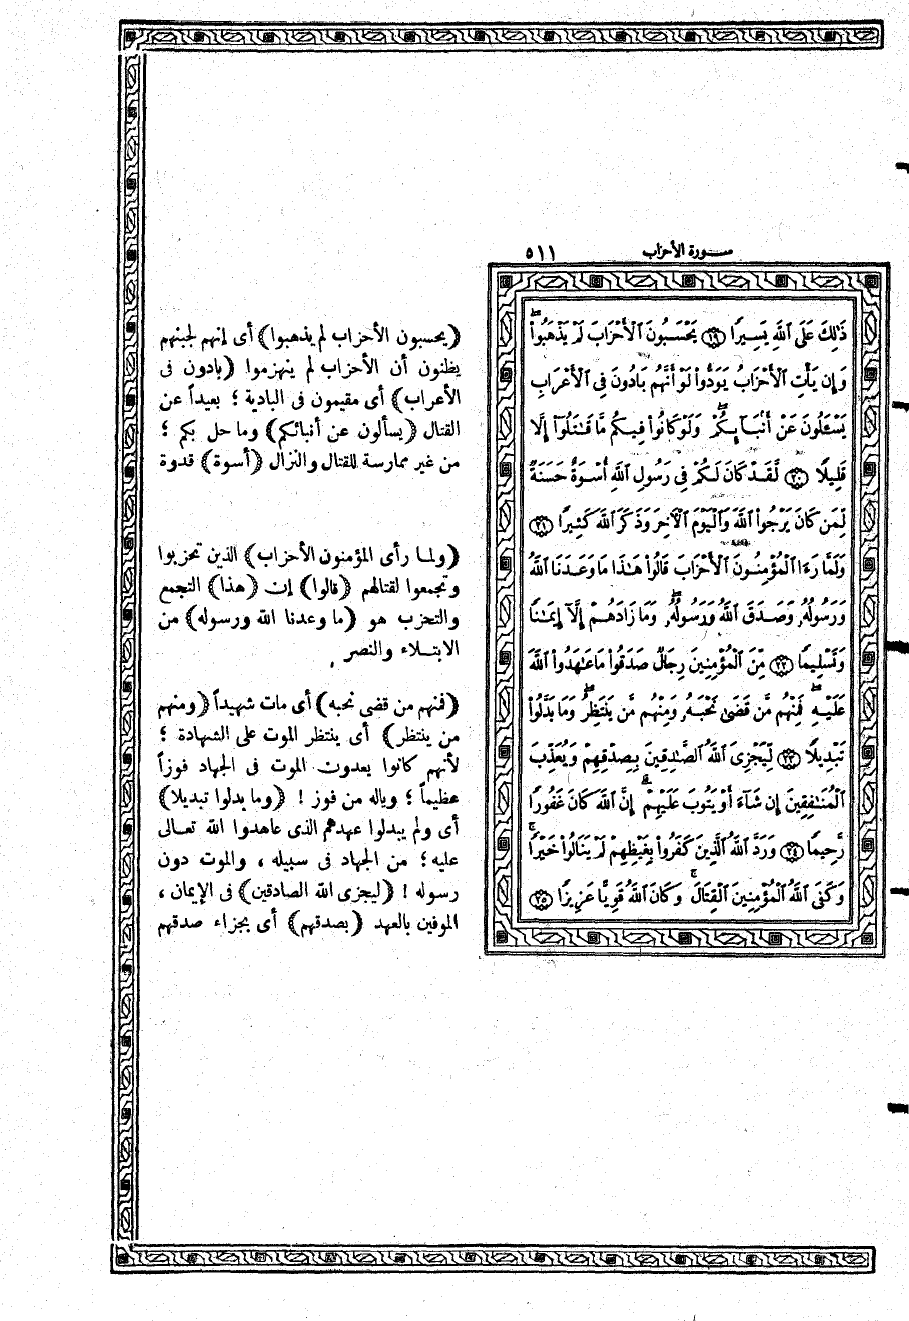 سورة الأحزاب ٥١١
ذَٰلِكَ عَلَى ٱللَّهِ يَسِيرًا ۝١٩ يَحْسَبُونَ ٱلْأَحْزَابَ لَمْ يَذْهَبُوا۟ ۖ
وَإِن يَأْتِ ٱلْأَحْزَابُ يَوَدُّوا۟ لَوْ أَنَّهُم بَادُونَ فِى ٱلْأَعْرَابِ
يَسْـَٔلُونَ عَنْ أَنۢبَآئِكُمْ ۖ وَلَوْ كَانُوا۟ فِيكُم مَّا قَـٰتَلُوٓا۟ إِلَّا
قَلِيلًا ۝٢٠ لَّقَدْ كَانَ لَكُمْ فِى رَسُولِ ٱللَّهِ أُسْوَةٌ حَسَنَةٌ
لِّمَن كَانَ يَرْجُوا۟ ٱللَّهَ وَٱلْيَوْمَ ٱلْـَٔاخِرَ وَذَكَرَ ٱللَّهَ كَثِيرًا ۝٢١
وَلَمَّا رَءَا ٱلْمُؤْمِنُونَ ٱلْأَحْزَابَ قَالُوا۟ هَـٰذَا مَا وَعَدَنَا ٱللَّهُ
وَرَسُولُهُۥ وَصَدَقَ ٱللَّهُ وَرَسُولُهُۥ ۚ وَمَا زَادَهُمْ إِلَّآ إِيمَـٰنًا
وَتَسْلِيمًا ۝٢٢ مِّنَ ٱلْمُؤْمِنِينَ رِجَالٌ صَدَقُوا۟ مَا عَـٰهَدُوا۟ ٱللَّهَ
عَلَيْهِ ۖ فَمِنْهُم مَّن قَضَىٰ نَحْبَهُۥ وَمِنْهُم مَّن يَنتَظِرُ ۖ وَمَا بَدَّلُوا۟
تَبْدِيلًا ۝٢٣ لِّيَجْزِىَ ٱللَّهُ ٱلصَّـٰدِقِينَ بِصِدْقِهِمْ وَيُعَذِّبَ
ٱلْمُنَـٰفِقِينَ إِن شَآءَ أَوْ يَتُوبَ عَلَيْهِمْ ۚ إِنَّ ٱللَّهَ كَانَ غَفُورًا
رَّحِيمًا ۝٢٤ وَرَدَّ ٱللَّهُ ٱلَّذِينَ كَفَرُوا۟ بِغَيْظِهِمْ لَمْ يَنَالُوا۟ خَيْرًا ۚ
وَكَفَى ٱللَّهُ ٱلْمُؤْمِنِينَ ٱلْقِتَالَ ۚ وَكَانَ ٱللَّهُ قَوِيًّا عَزِيزًا ۝٢٥
(يحسبون الأحزاب لم يذهبوا) أى إنهم لجبنهم
يظنون أن الأحزاب لم ينهزموا (بادون فى
الأعراب) أى مقيمون فى البادية ؛ بعيداً عن
القتال (يسألون عن أنبائكم) وما حل بكم ؛
من غير ممارسة للقتال والنزال (أسوة) قدوة
(ولما رأى المؤمنون الأحزاب) الذين تحزبوا
وتجمعوا لقتالهم (قالوا) إن (هذا) التجمع
والتحزب هو (ما وعدنا الله ورسوله) من
الابتلاء والنصر .
(فمنهم من قضى نحبه) أى مات شهيداً (ومنهم
من ينتظر) أى ينتظر الموت على الشهادة ؛
لأنهم كانوا يعدون الموت فى الجهاد فوزاً
عظيماً ؛ وياله من فوز ! (وما بدلوا تبديلا)
أى ولم يبدلوا عهدهم الذى عاهدوا الله تعالى
عليه ؛ من الجهاد فى سبيله ، والموت دون
رسوله ! (ليجزى الله الصادقين) فى الإيمان ،
الموفين بالعهد (بصدقهم) أى بجزاء صدقهم